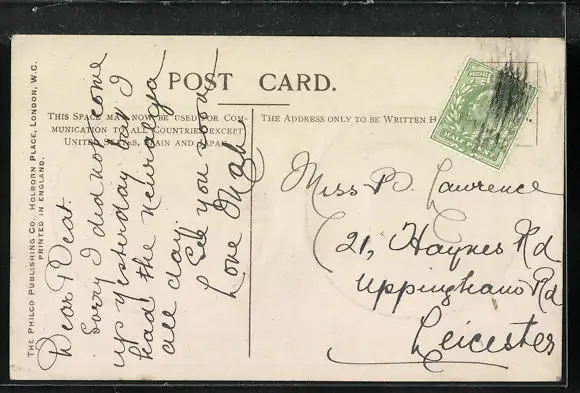 POST CARD.
THIS SPACE MAY NOW BE USED FOR COM-
MUNICATION TO ALL COUNTRIES, EXCEPT
UNITED STATES, SPAIN AND JAPAN.
THE ADDRESS ONLY TO BE WRITTEN H
THE PHILCO PUBLISHING CO., HOLBORN PLACE, LONDON, W.C.
PRINTED IN ENGLAND.
Dear Beat.
Sorry I did not come
up yesterday but I
had the neuralgia
all day.
See you soon
Love Mab
POSTAGE
HALF PENNY
Miss B. Lawrence
21, Haynes Rd
Uppingham Rd
Leicester